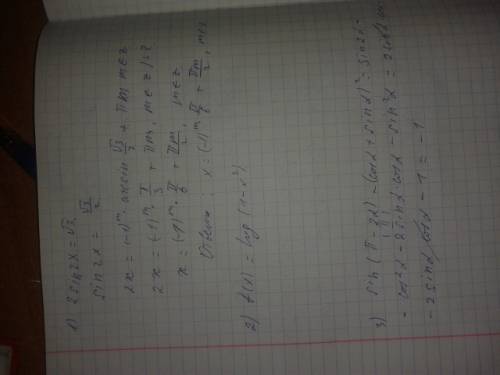 1) 2sin2x=√3
sin2x = √3/2
2x = (-1)^m · arcsin √3/2 + πm, m∈z
2x = (-1)^m · π/3 + πm, m∈z |:2
x = (-1)^m · π/6 + πm/2, m∈z
Ответ: x = (-1)^m · π/6 + πm/2, m∈z
2) f(x) = log (1-x²)
3) sin(π-2α) - (cosα + sinα)² = sin2α -
- cos²α - 2sinα cosα - sin²α = 2cosα sinα
- 2sinα cosα - 1 = -1